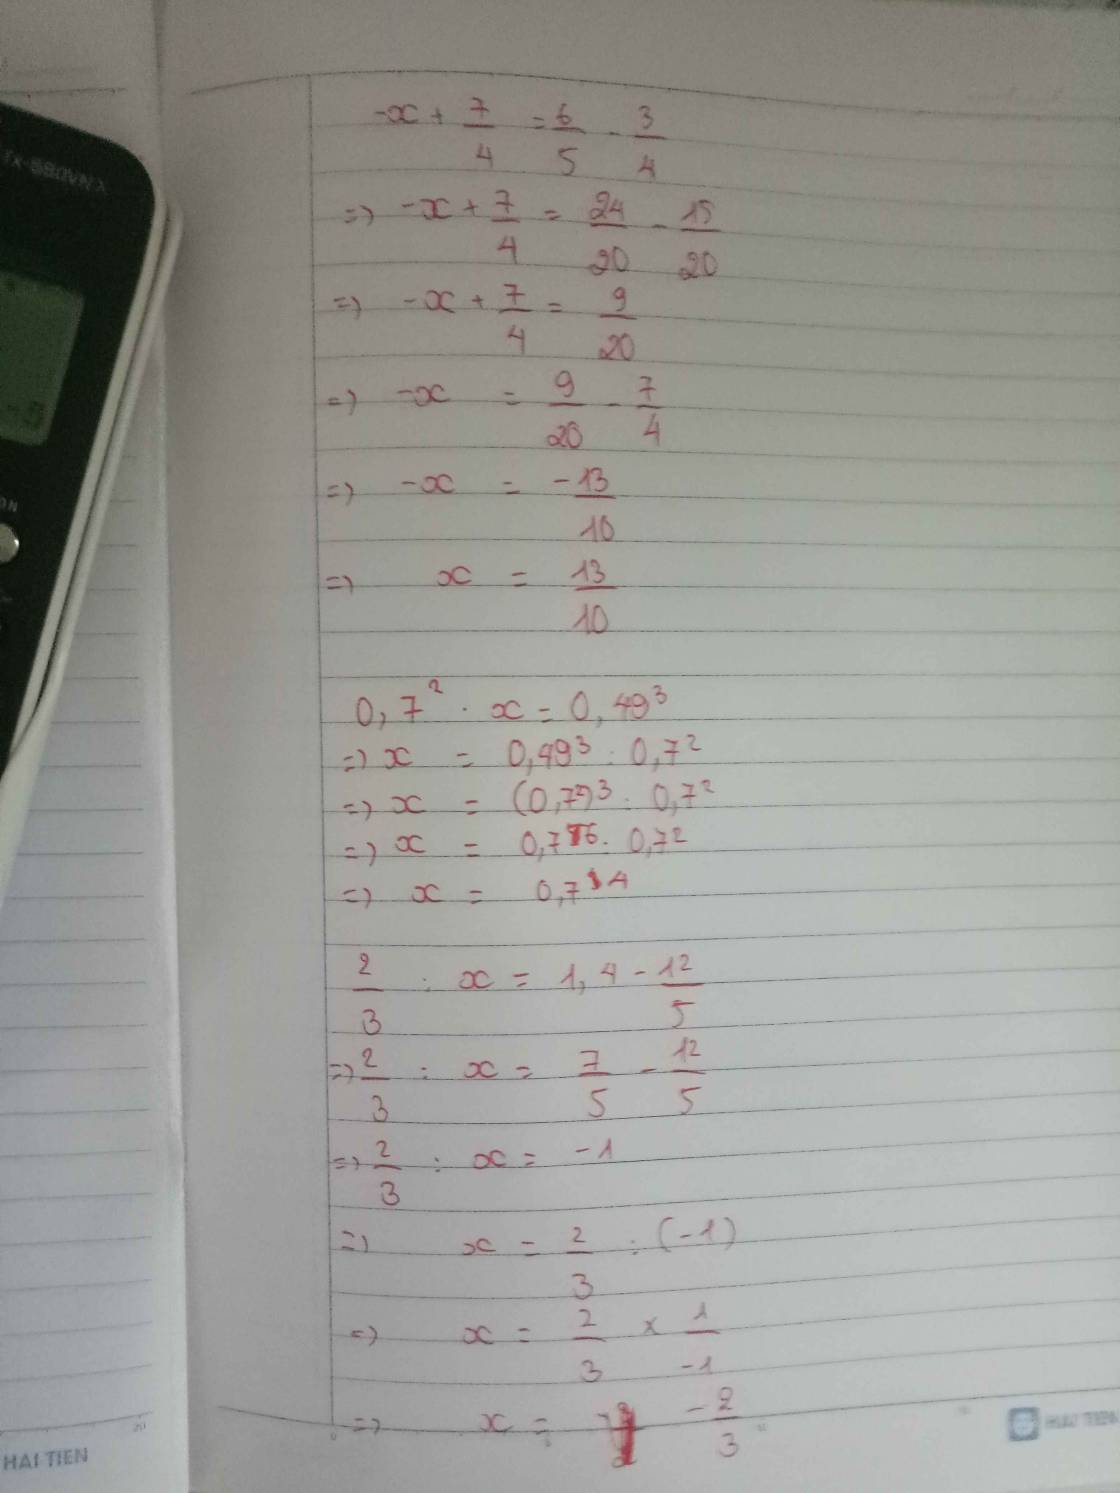 fx-580VN X
ON
-x + 7/4 = 6/5 - 3/4
=> -x + 7/4 = 24/20 - 15/20
=> -x + 7/4 = 9/20
=> -x = 9/20 - 7/4
=> -x = -13/10
=> x = 13/10
0,7² · x = 0,49³
=> x = 0,49³ : 0,7²
=> x = (0,7²)³ : 0,7²
=> x = 0,7⁶ : 0,7²
=> x = 0,7⁴
2/3 : x = 1,4 - 12/5
=> 2/3 : x = 7/5 - 12/5
=> 2/3 : x = -1
=> x = 2/3 : (-1)
=> x = 2/3 × 1/-1
=> x = -2/3
20
HAI TIEN
HAI TIEN